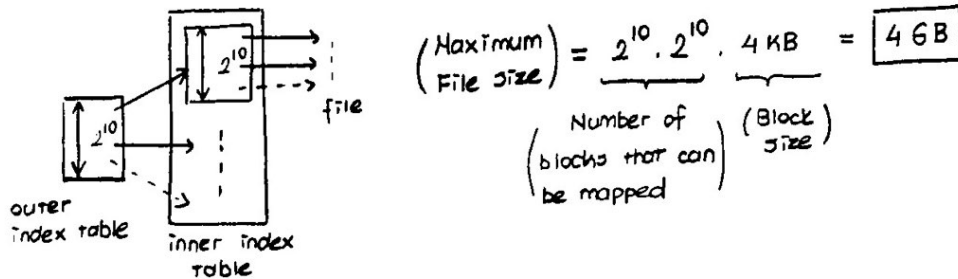 2^10
2^10
file
outer
index table
inner index
table
(Maximum File size) = 2^10 . 2^10 . 4 KB = 4 GB
(Number of blocks that can be mapped) (Block size)